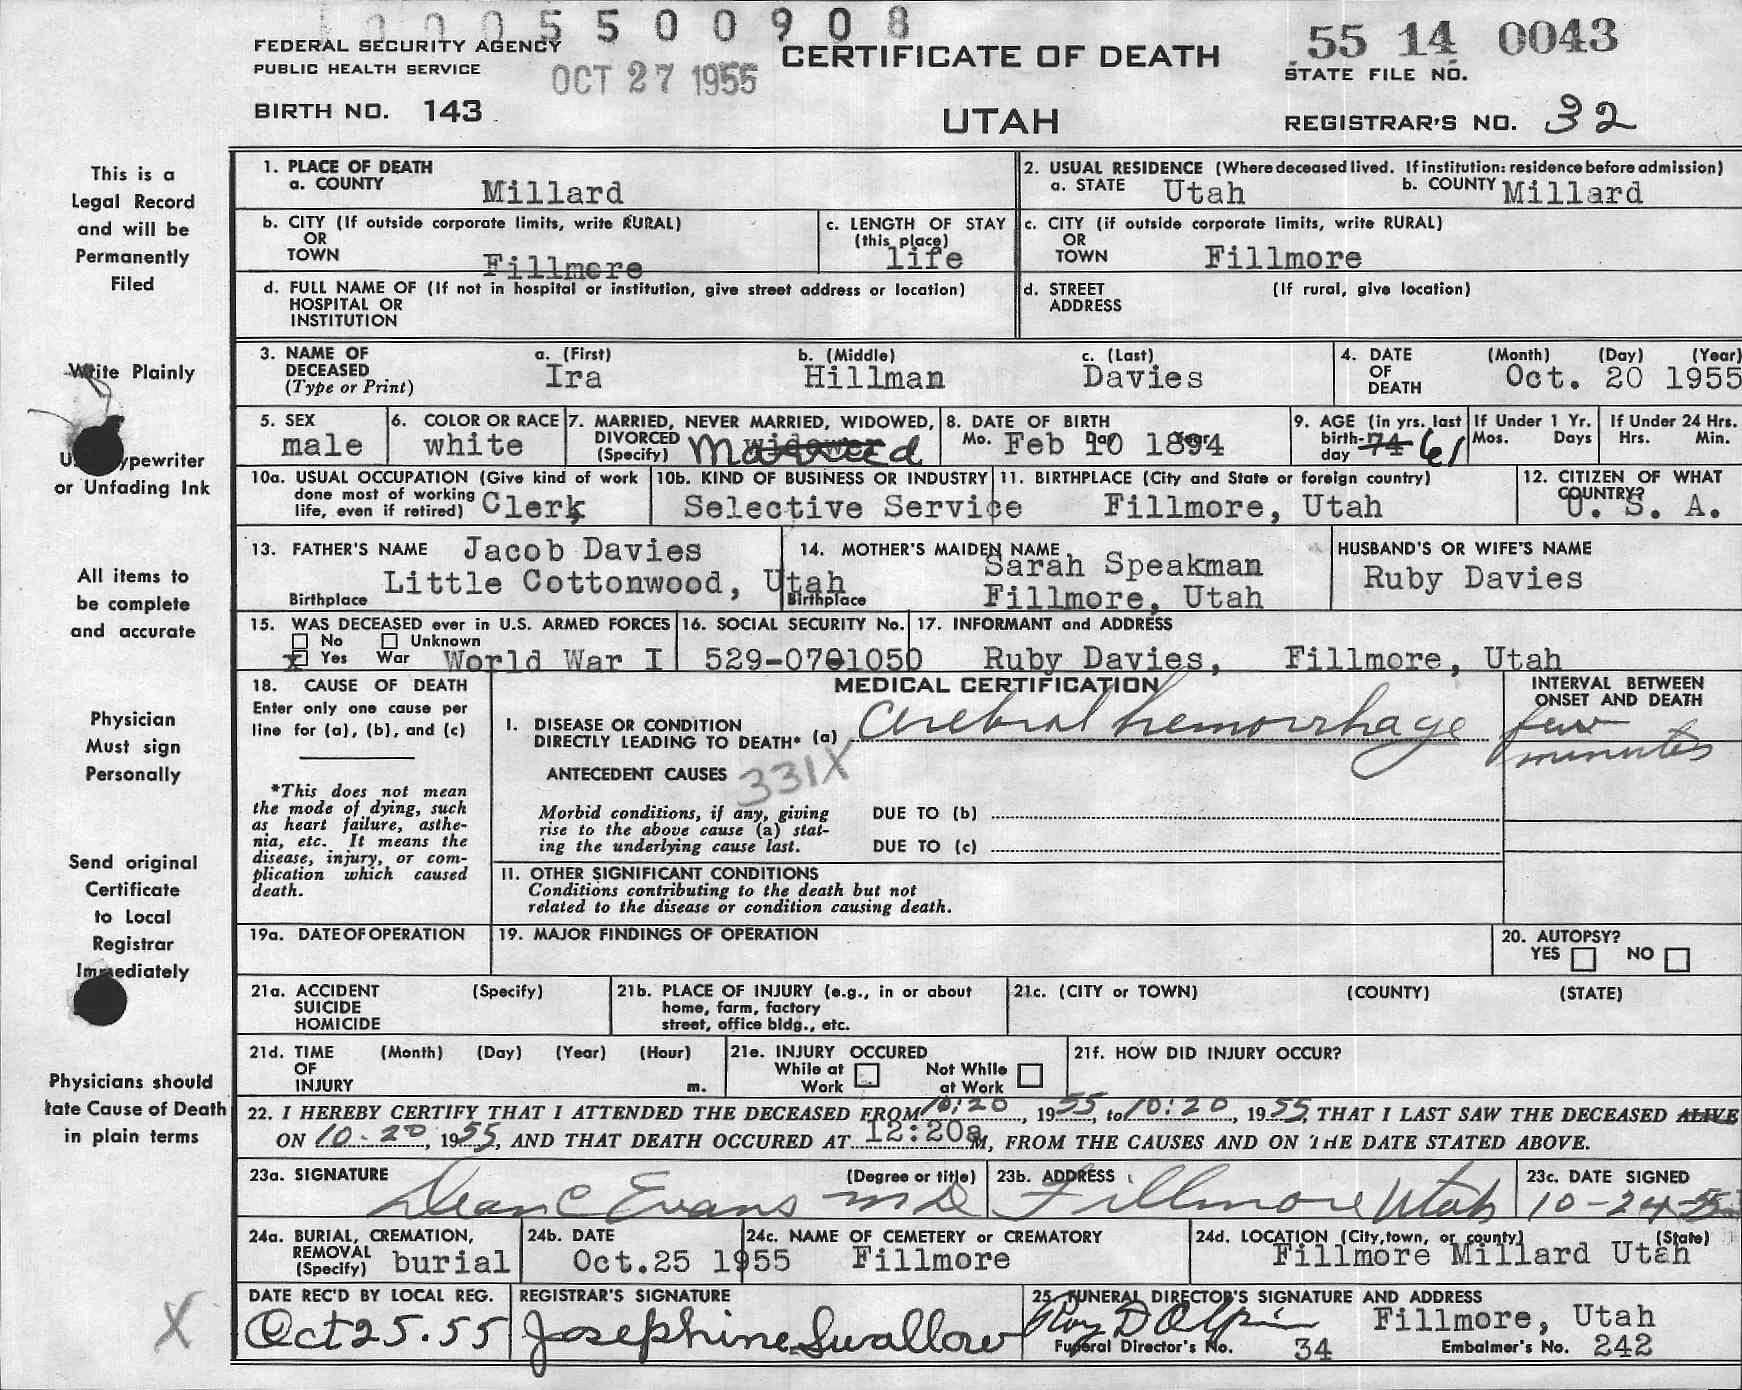 0005500908
FEDERAL SECURITY AGENCY
PUBLIC HEALTH SERVICE
OCT 27 1955
CERTIFICATE OF DEATH
55 14 0043
STATE FILE NO.
BIRTH NO. 143
UTAH
REGISTRAR'S NO. 32
This is a
Legal Record
and will be
Permanently
Filed
Write Plainly
Typewriter
or Unfading Ink
All items to
be complete
and accurate
Physician
Must sign
Personally
Send original
Certificate
to Local
Registrar
Immediately
Physicians should
tate Cause of Death
in plain terms
X
1. PLACE OF DEATH
a. COUNTY Millard
2. USUAL RESIDENCE (Where deceased lived. If institution: residence before admission)
a. STATE Utah b. COUNTY Millard
b. CITY (If outside corporate limits, write RURAL)
OR
TOWN Fillmore
c. LENGTH OF STAY
(this place)
life
c. CITY (if outside corporate limits, write RURAL)
OR
TOWN Fillmore
d. FULL NAME OF (If not in hospital or institution, give street address or location)
HOSPITAL OR
INSTITUTION
d. STREET (If rural, give location)
ADDRESS
3. NAME OF DECEASED (Type or Print)
a. (First) b. (Middle) c. (Last)
Ira Hillman Davies
4. DATE OF DEATH (Month) (Day) (Year)
Oct. 20 1955
5. SEX
male
6. COLOR OR RACE
white
7. MARRIED, NEVER MARRIED, WIDOWED,
DIVORCED
(Specify) widowed Married
8. DATE OF BIRTH
Mo. Feb 10 1894
9. AGE (in yrs. last
birth-
day 74 61
If Under 1 Yr.
Mos. Days
If Under 24 Hrs.
Hrs. Min.
10a. USUAL OCCUPATION (Give kind of work
done most of working
life, even if retired) Clerk
10b. KIND OF BUSINESS OR INDUSTRY
Selective Service
11. BIRTHPLACE (City and State or foreign country)
Fillmore, Utah
12. CITIZEN OF WHAT
COUNTRY?
U. S. A.
13. FATHER'S NAME Jacob Davies
Birthplace Little Cottonwood, Utah
14. MOTHER'S MAIDEN NAME
Sarah Speakman
Birthplace Fillmore, Utah
HUSBAND'S OR WIFE'S NAME
Ruby Davies
15. WAS DECEASED ever in U.S. ARMED FORCES
No Unknown
x Yes War World War I
16. SOCIAL SECURITY No.
529-07-1050
17. INFORMANT and ADDRESS
Ruby Davies, Fillmore, Utah
18. CAUSE OF DEATH
Enter only one cause per
line for (a), (b), and (c)
*This does not mean
the mode of dying, such
as heart failure, asthe-
nia, etc. It means the
disease, injury, or com-
plication which caused
death.
MEDICAL CERTIFICATION
I. DISEASE OR CONDITION
DIRECTLY LEADING TO DEATH* (a) Cerebral hemorrhage
INTERVAL BETWEEN
ONSET AND DEATH
few
minutes
ANTECEDENT CAUSES 331X
Morbid conditions, if any, giving
rise to the above cause (a) stat-
ing the underlying cause last.
DUE TO (b)
DUE TO (c)
II. OTHER SIGNIFICANT CONDITIONS
Conditions contributing to the death but not
related to the disease or condition causing death.
19a. DATE OF OPERATION
19. MAJOR FINDINGS OF OPERATION
20. AUTOPSY?
YES NO
21a. ACCIDENT (Specify)
SUICIDE
HOMICIDE
21b. PLACE OF INJURY (e.g., in or about
home, farm, factory
street, office bldg., etc.
21c. (CITY or TOWN) (COUNTY) (STATE)
21d. TIME (Month) (Day) (Year) (Hour)
OF
INJURY m.
21e. INJURY OCCURED
While at Work Not While at Work
21f. HOW DID INJURY OCCUR?
22. I HEREBY CERTIFY THAT I ATTENDED THE DECEASED FROM 10:20, 1955, to 10:20, 1955, THAT I LAST SAW THE DECEASED ALIVE
ON 10-20, 1955, AND THAT DEATH OCCURED AT 12:20a M, FROM THE CAUSES AND ON THE DATE STATED ABOVE.
23a. SIGNATURE (Degree or title)
Dean C Evans MD
23b. ADDRESS
Fillmore Utah
23c. DATE SIGNED
10-24-55
24a. BURIAL, CREMATION,
REMOVAL
(Specify) burial
24b. DATE
Oct.25 1955
24c. NAME OF CEMETERY or CREMATORY
Fillmore
24d. LOCATION (City,town, or county) (State)
Fillmore Millard Utah
DATE REC'D BY LOCAL REG.
Oct 25.55
REGISTRAR'S SIGNATURE
Josephine Swallow
25. FUNERAL DIRECTOR'S SIGNATURE AND ADDRESS
Fillmore, Utah
Funeral Director's No. 34 Embalmer's No. 242